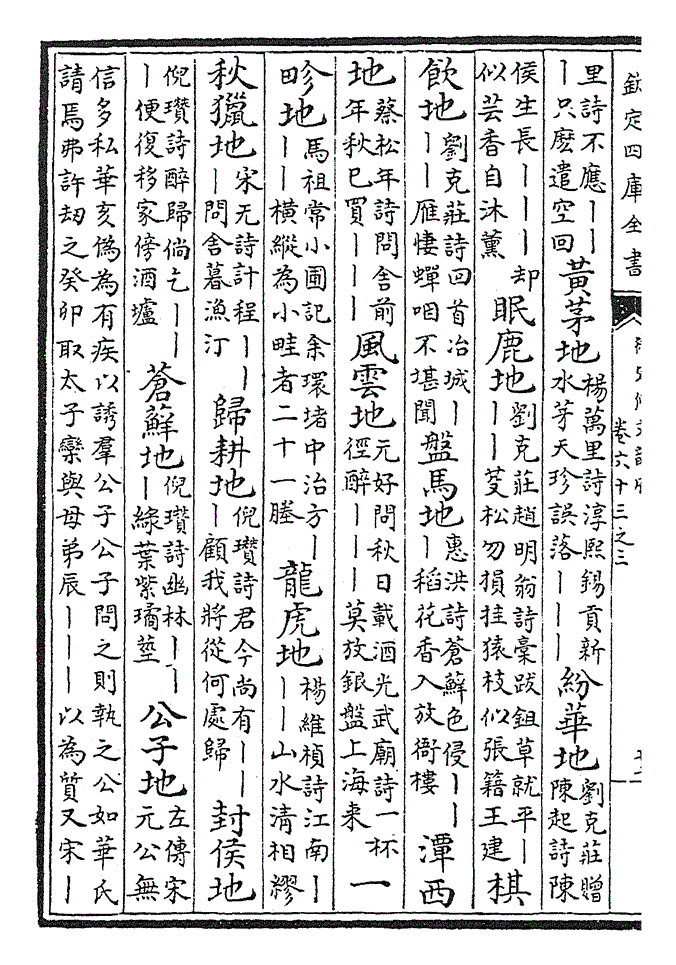 欽定四庫全書
卷六十三之三
里詩不應丨丨丨只麽遣空回 黃茅地 楊萬里詩淳熙錫貢新水芽天珍誤落丨丨丨 紛華地 劉克莊贈陳起詩陳
侯生長丨丨丨却似芸香自沐薰 眠鹿地 劉克莊趙明翁詩稾跋鉏草就平丨丨丨芟松勿損挂猿枝似張籍王建 棋
飲地 劉克莊詩回首冶城丨丨丨雁悽蟬咽不堪聞 盤馬地 惠洪詩蒼蘚色侵丨丨丨稻花香入放衙樓 潭西
地 蔡松年詩問舍前年秋已買丨丨丨 風雲地 元好問秋日載酒光武廟詩一杯徑醉丨丨丨莫放銀盤上海来 一
畛地 馬祖常小圃記余環堵中治方丨丨丨橫縱為小畦者二十一塍 龍虎地 楊維楨詩江南丨丨丨山水清相繆
秋獵地 宋无詩計程丨丨丨問舍暮漁汀 歸耕地 倪瓚詩君今尚有丨丨丨顧我將從何處歸 封侯地
倪瓚詩醉歸倘乞丨丨丨便復移家傍酒壚 蒼蘚地 倪瓚詩幽林丨丨丨綠葉紫璚莖 公子地 左傳宋元公無
信多私華亥偽為有疾以誘羣公子公子問之則執之公如華氏請焉弗許刼之癸卯取太子欒與母弟辰丨丨丨以為質又宋丨